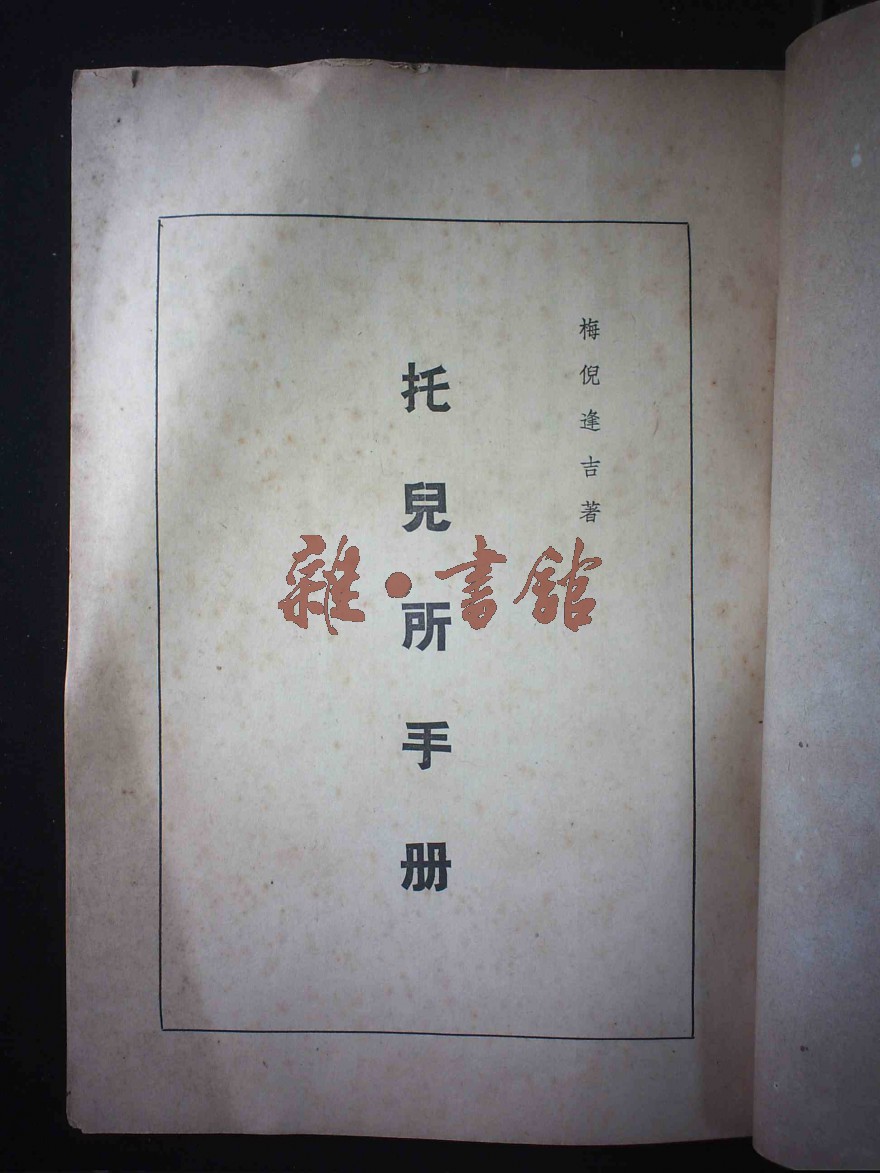 梅倪逢吉著
托兒所手册
雜·書館